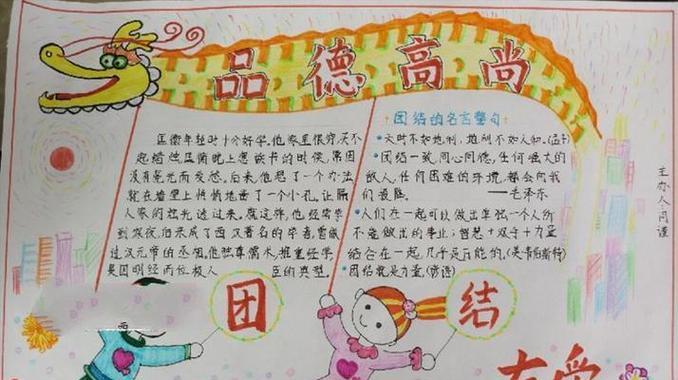 品德高尚
匡衡年轻时十分好学。他家里很穷,买不
起蜡烛。匡衡晚上想读书的时候,常因
没有亮光而发愁。后来,他想了一个办法
就在墙壁上悄悄地凿了一个小孔,让隔
人家的烛光透过来。就这样,他经常学
到深夜,后来成了西汉著名的学者,曾做
过汉元帝的丞相。他独尊儒术,推重经学
是因明经而位极人臣的典型。
团结的名言警句
天时不如地利,地利不如人和。(孟子)
团结一致,同心同德,任何强大的
敌人,任何困难的环境,都会向我
们投降。——毛泽东
人们在一起可以做出单独一个人所
不能做出的事业;智慧+双手+力量
结合在一起,几乎是万能的。(美韦伯斯特)
团结就是力量。(谚语)
主办人:闫谨
团
结
友爱